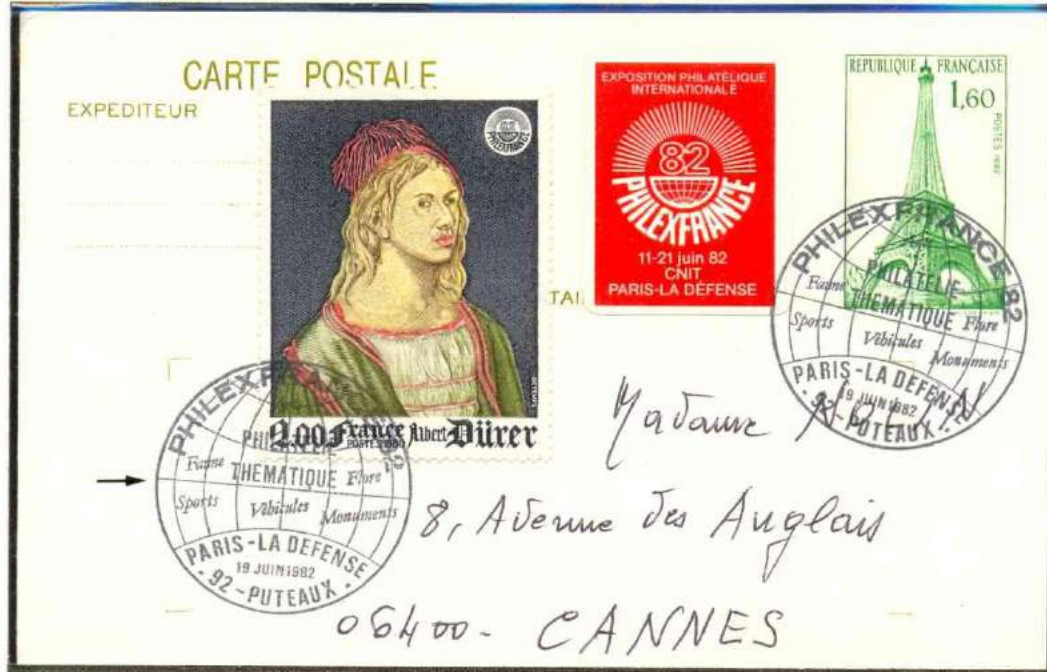 CARTE POSTALE
EXPEDITEUR
82
PHILEXFRANCE
2,00 France Albert Dürer
POSTES 1980
EXPOSITION PHILATÉLIQUE
INTERNATIONALE
82
PHILEXFRANCE
11-21 juin 82
CNIT
PARIS-LA DÉFENSE
REPUBLIQUE FRANÇAISE
1,60
POSTES 1982
TAL
PHILEXFRANCE 82
PHILATELIE
THEMATIQUE
Faune Flore
Sports Véhicules Monuments
PARIS-LA DEFENSE
19 JUIN 1982
92-PUTEAUX
PHILEXFRANCE 82
PHILATELIE
Faune THEMATIQUE Flore
Sports Véhicules Monuments
PARIS-LA DEFENSE
19 JUIN 1982
92-PUTEAUX
Madame
8, Avenue des Anglais
06400- CANNES